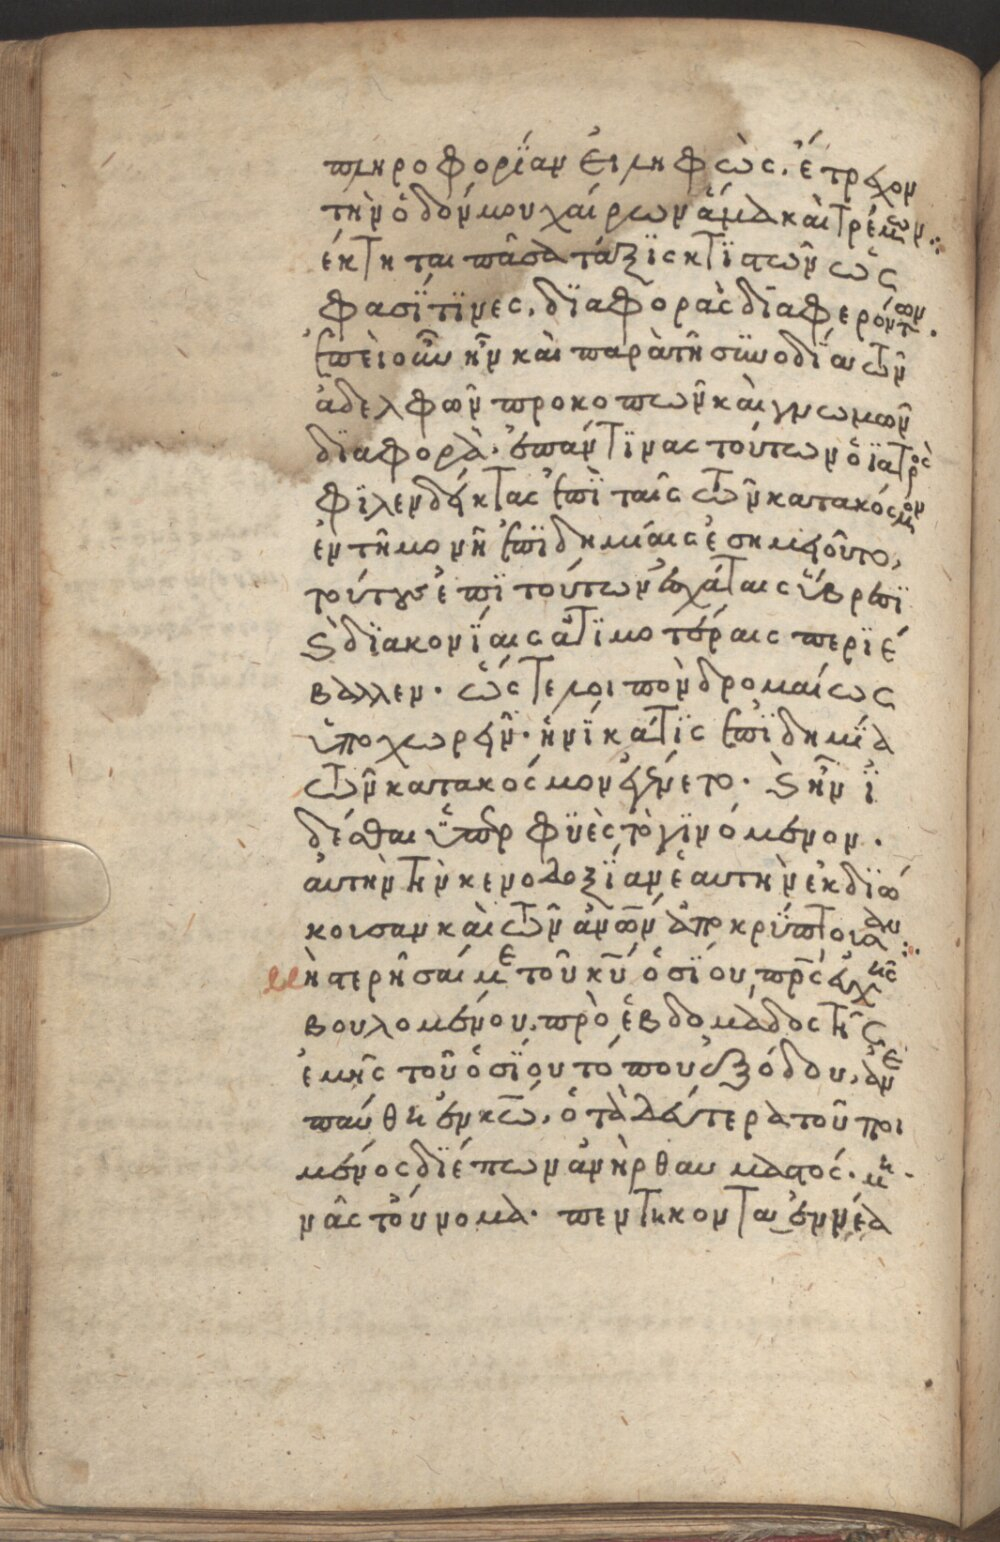 πληροφορίαν εἰληφὼς. ἔτρεχον
τὴν ὁδόν μου χαίρων ἅμα καὶ τρέμων:
ἔκτηται πᾶσα τάξϊς κτϊστῶν ὥς
φασΐ τϊνες, δϊαφορὰς διαφερόντων.
ἐπεὶ οὖν ἦν καὶ παρὰ τῆ συνοδίαι τῶν
ἀδελφῶν προκοπῶν καὶ γνωμῶν
δϊαφορὰ· ἐπάν τϊνας τούτων ὁ ἰατρὸς
φϊλενδείκτας ἐπῒ ταῖς τῶν κατακόσμον
ἐν τῆ μονῆ ἐπϊδημίαις ἐσημειοῦτο,
τούτους ἐπῒ τούτων ἐσχάταις ὕβρεσϊ
καὶ δϊακονΐαις ἀτϊμοτέραις περϊέ
βαλλεν· ὥς τε λοιπὸν δρομαίως
ὑποχωρεῖν· ἡνΐκα τϊς ἐπϊδημΐα
τῶν κατακόσμον ἐγένετο· καὶ ἦν ϊ
δέσθαι ὑπὲρ φϋὲς τὸ γϊνόμενον.
αὐτὴν τὴν κενοδοξΐαν ἑαυτὴν ἐκδϊώ
κουσαν καὶ τῶν ἀνων ἀποκρύπτουσαν:
μὴ στερῆσαί με τοῦ κυ ὁσΐου πρς εὐχῆς
βουλομένου, πρὸ ἑβδομάδος τῆς
ἐμῆς τοῦ ὁσΐου τόπου ἐξόδου, ἀνε
παύθη ἐν κω, ὁ τὰ δεύτερα τοῦ ποι
μένος δϊέπων ἀνὴρ θαυμαστός· μη
νᾶς τοὔνομα· πεντήκοντα ἐννέα